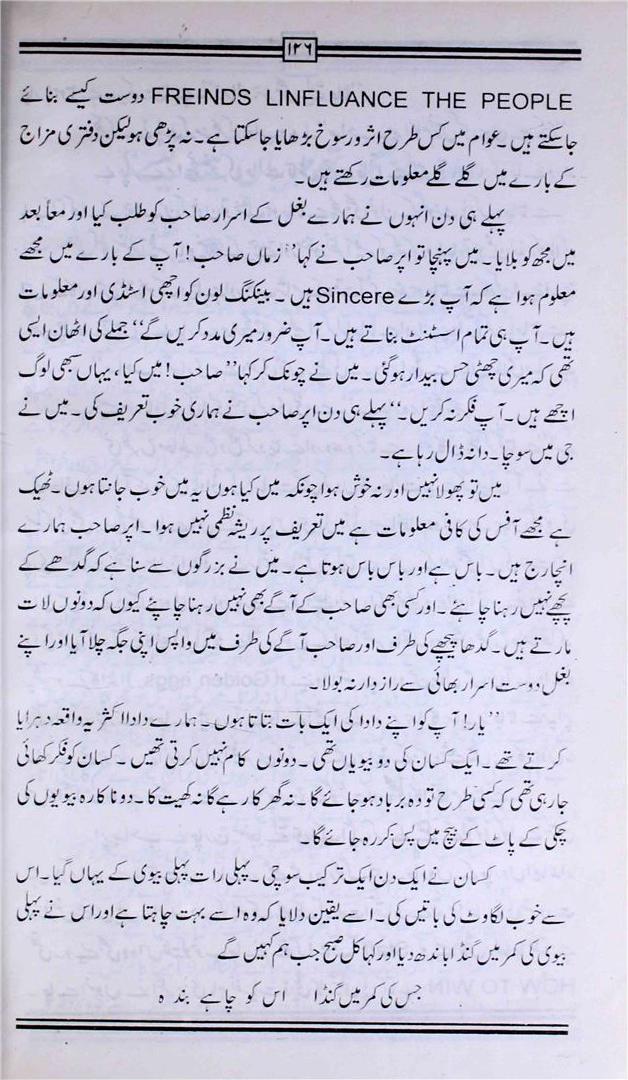 ۱۲۶
FREINDS LINFLUANCE THE PEOPLE دوست کیسے بنائے
جاسکتے ہیں۔ عوام میں کس طرح اثر ورسوخ بڑھایا جاسکتا ہے۔ نہ پڑھی ہو لیکن دفتری مزاج
کے بارے میں گلے گلے معلومات رکھتے ہیں۔
پہلے ہی دن انہوں نے ہمارے بغل کے اسرار صاحب کو طلب کیا اور معاً بعد
میں مجھ کو بلایا۔ میں پہنچا تو اپر صاحب نے کہا ’’زماں صاحب! آپ کے بارے میں مجھے
معلوم ہوا ہے کہ آپ بڑے Sincere ہیں۔ بینکنگ لون کو اچھی اسٹڈی اور معلومات
ہیں۔ آپ ہی تمام اسٹنٹ بناتے ہیں۔ آپ ضرور میری مدد کریں گے‘‘ جملے کی اٹھان ایسی
تھی کہ میری چھٹی حس بیدار ہوگئی۔ میں نے چونک کر کہا ’’صاحب! میں کیا، یہاں سبھی لوگ
اچھے ہیں۔ آپ فکر نہ کریں۔‘‘ پہلے ہی دن اپر صاحب نے ہماری خوب تعریف کی۔ میں نے
جی میں سوچا۔ دانہ ڈال رہا ہے۔
میں تو پھولا نہیں اور نہ خوش ہوا چونکہ میں کیا ہوں یہ میں خوب جانتا ہوں۔ ٹھیک
ہے مجھے آفس کی کافی معلومات ہے میں تعریف پر ریشہ خطمی نہیں ہوا۔ اپر صاحب ہمارے
انچارج ہیں۔ باس ہے اور باس باس ہوتا ہے۔ میں نے بزرگوں سے سنا ہے کہ گدھے کے
پیچھے نہیں رہنا چاہئے۔ اور کسی بھی صاحب کے آگے بھی نہیں رہنا چاہئے کیوں کہ دونوں لات
مارتے ہیں۔ گدھا پیچھے کی طرف اور صاحب آگے کی طرف میں واپس اپنی جگہ چلا آیا اور اپنے
بغل دوست اسرار بھائی سے رازدارنہ بولا۔
’’یار! آپ کو اپنے دادا کی ایک بات بتاتا ہوں۔ ہمارے دادا اکثر یہ واقعہ دہرایا
کرتے تھے۔ ایک کسان کی دو بیویاں تھی۔ دونوں کام نہیں کرتی تھیں۔ کسان کو فکر کھائی
جارہی تھی کہ کسی طرح تو وہ برباد ہوجائے گا۔ نہ گھر کا رہے گا نہ کھیت کا۔ دو ناکارہ بیویوں کی
چکی کے پاٹ کے بیچ میں پس کر رہ جائے گا۔
کسان نے ایک دن ایک ترکیب سوچی۔ پہلی رات پہلی بیوی کے یہاں گیا۔ اس
سے خوب لگاوٹ کی باتیں کی۔ اسے یقین دلایا کہ وہ اسے بہت چاہتا ہے اور اس نے پہلی
بیوی کی کمر میں گنڈا باندھ دیا اور کہا کل صبح جب ہم کہیں گے
جس کی کمر میں گنڈا اس کو چاہے بندہ